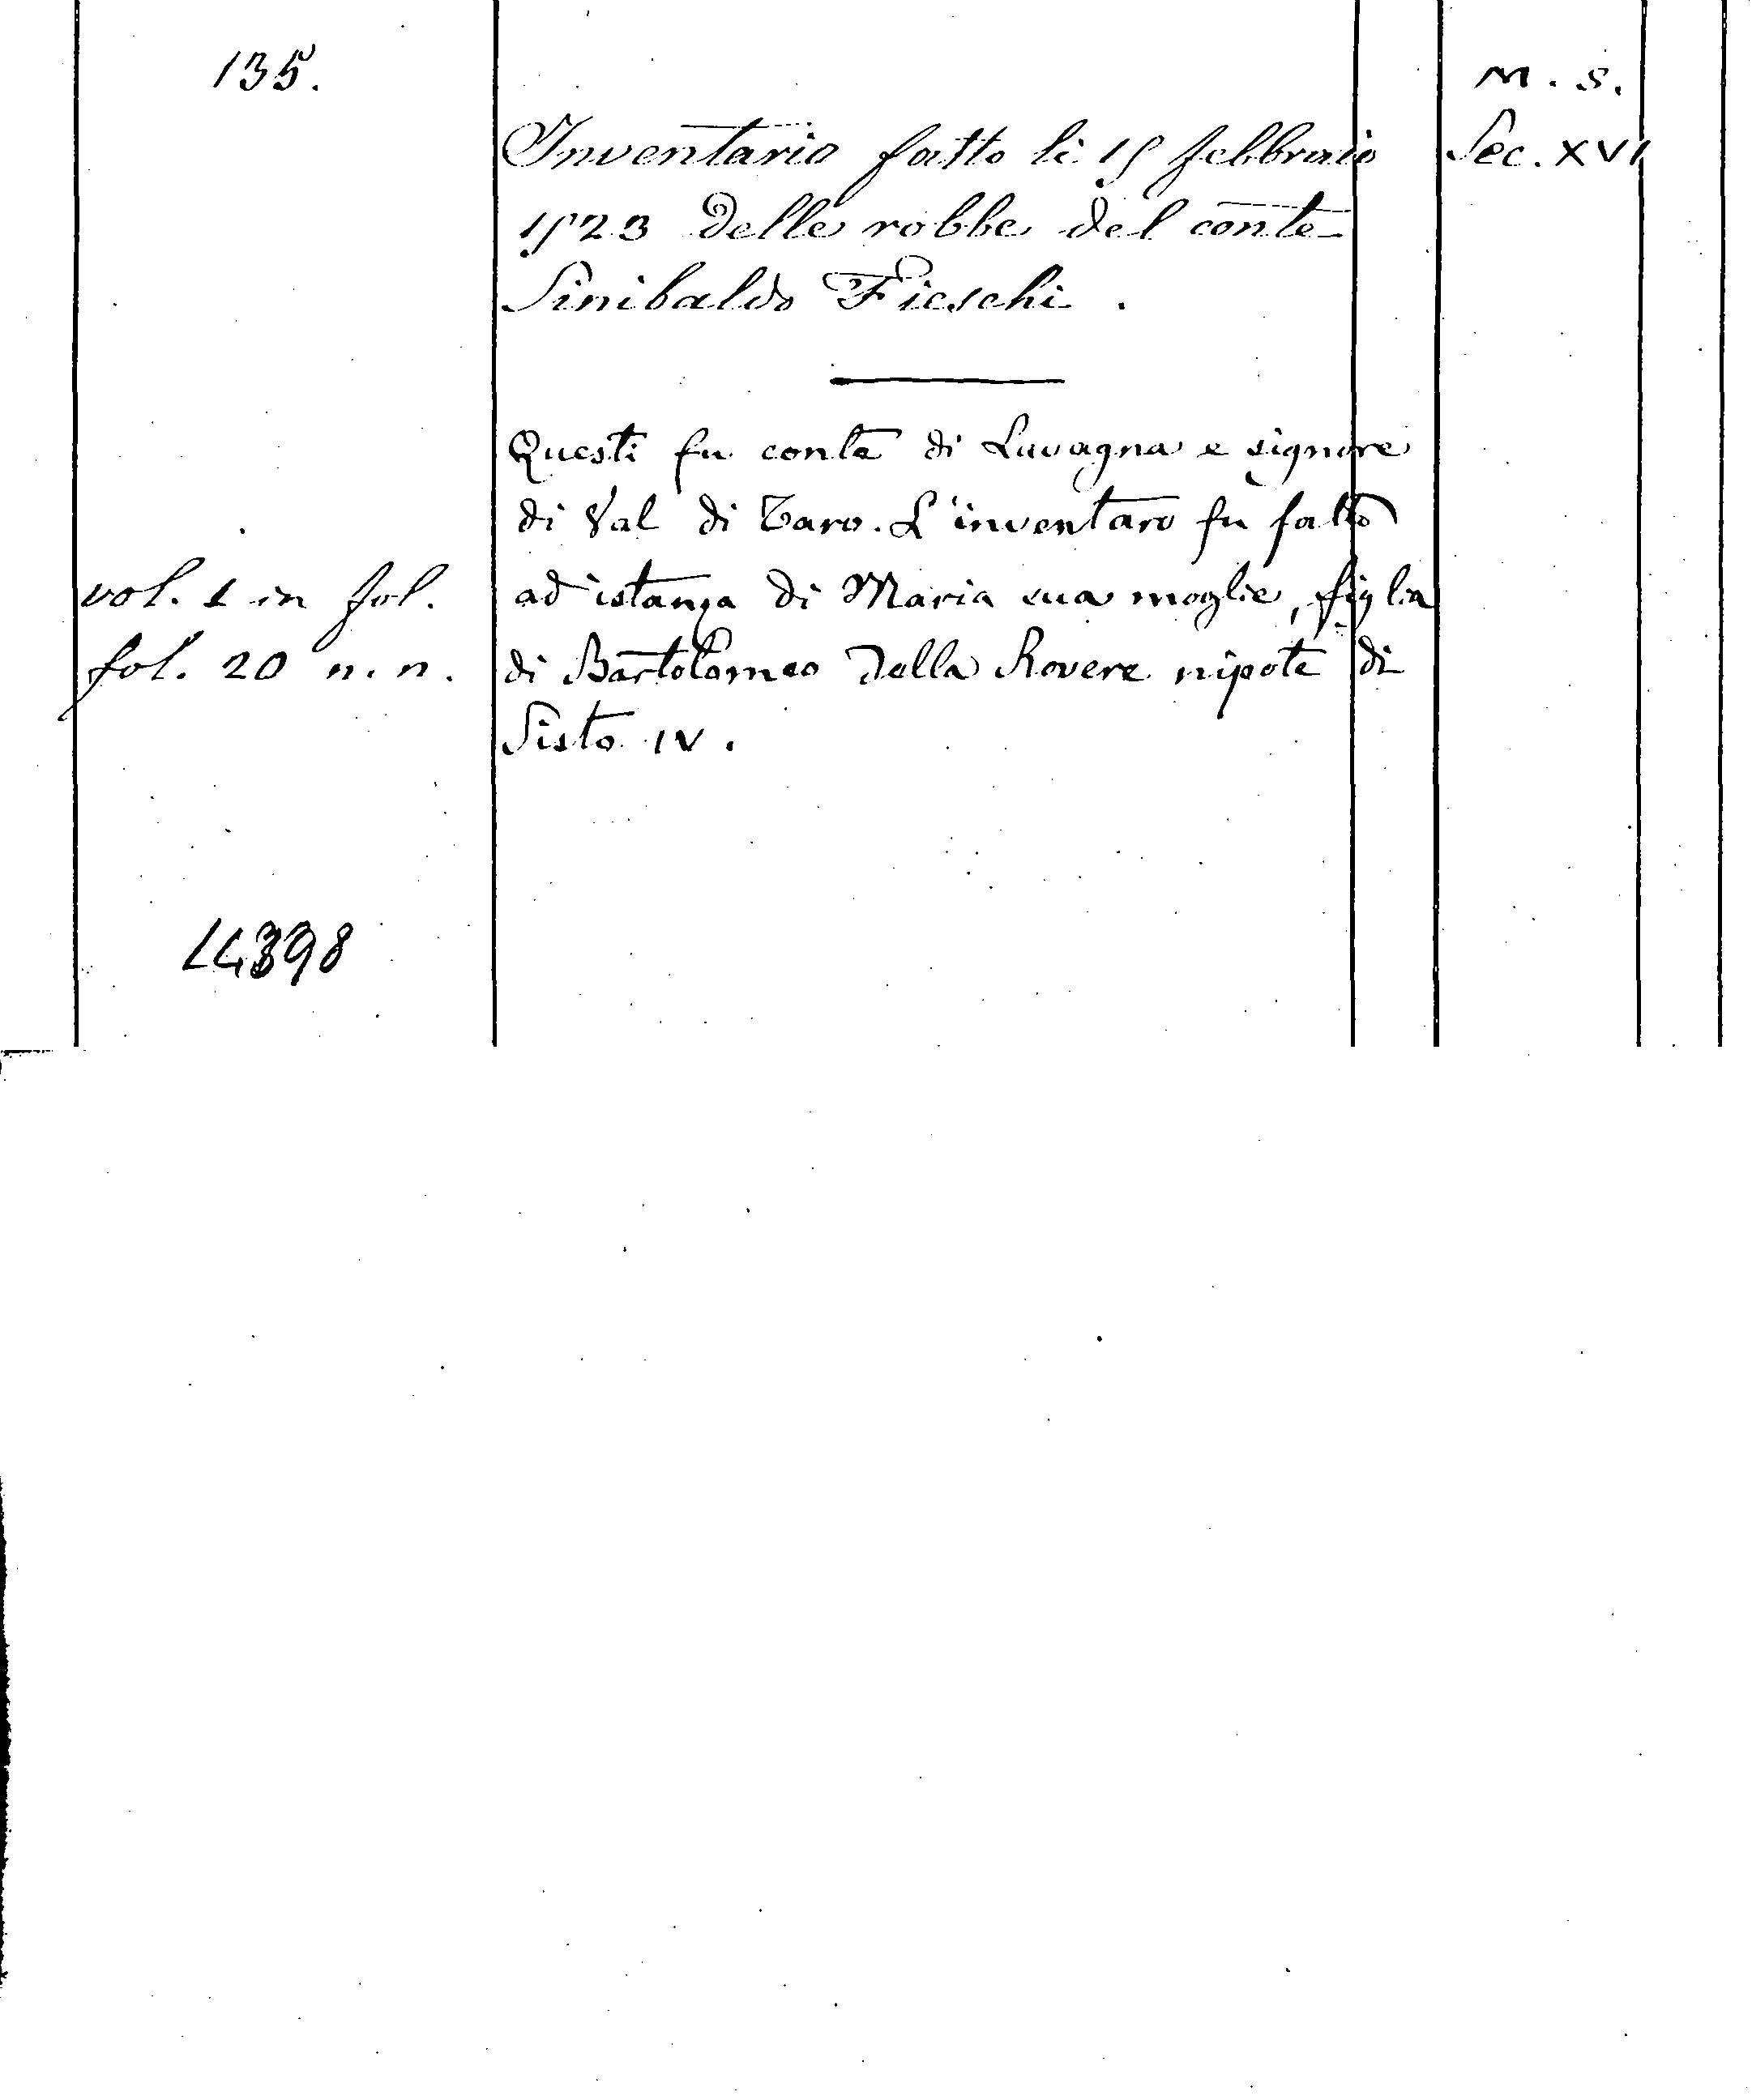 135.
M. S.
Inventario fatto li 15 febbraio
Sec. XVI
1523 delle robbe del conte
Sinibaldo Fieschi.
Questi fu conte di Lavagna e signore
di Val di Taro. L'inventaro fu fatto
vol. 1 in fol.
ad istanza di Maria sua moglie, figlia
fol. 20 n. n.
di Bartolomeo della Rovere nipote di
Sisto IV.
14398